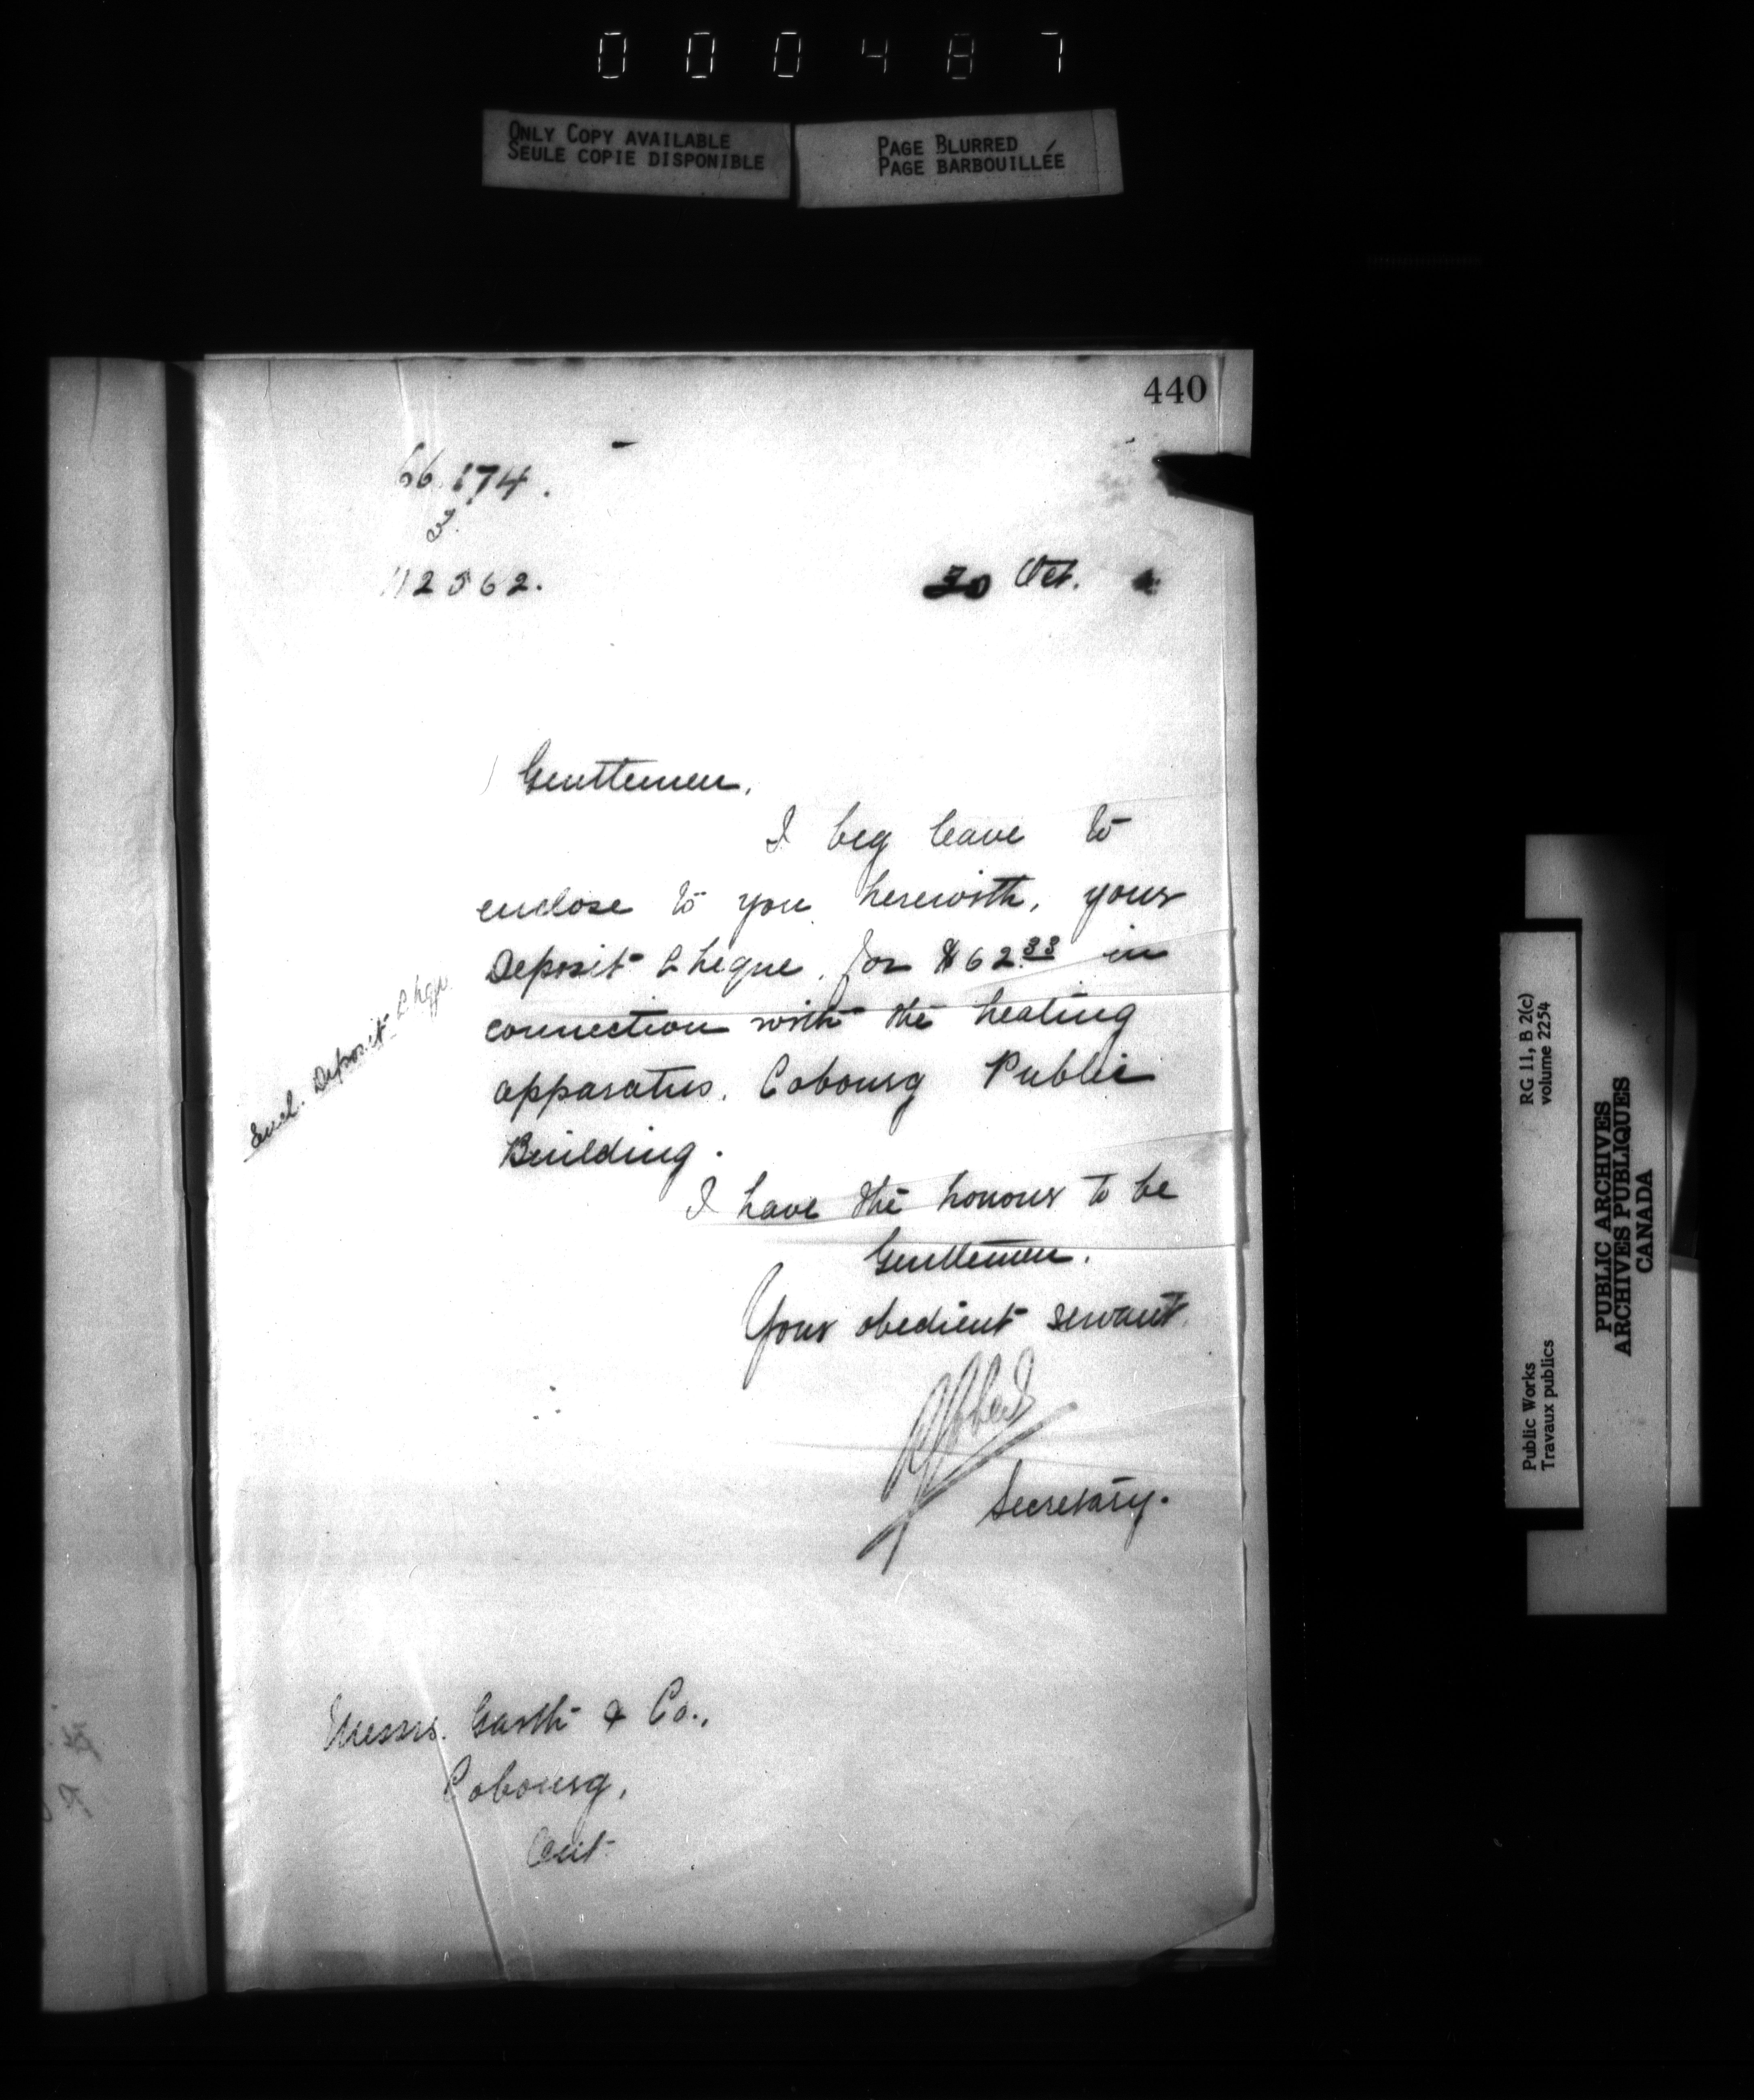 000487
ONLY COPY AVAILABLE
SEULE COPIE DISPONIBLE
PAGE BLURRED
PAGE BARBOUILLÉE
440
66.174.
112562.
30 Oct.
Gentlemen,
I beg leave to
enclose to you herewith, your
Deposit Cheque, for $62.33 in
connection with the heating
apparatus, Cobourg Public
Building.
Encl. Deposit Chqu.
I have the honour to be
Gentlemen,
Your obedient servant.
Secretary.
Messrs. Garth & Co.,
Cobourg,
Ont.
RG 11, B 2(c)
volume 2254
Public Works
Travaux publics
PUBLIC ARCHIVES
ARCHIVES PUBLIQUES
CANADA